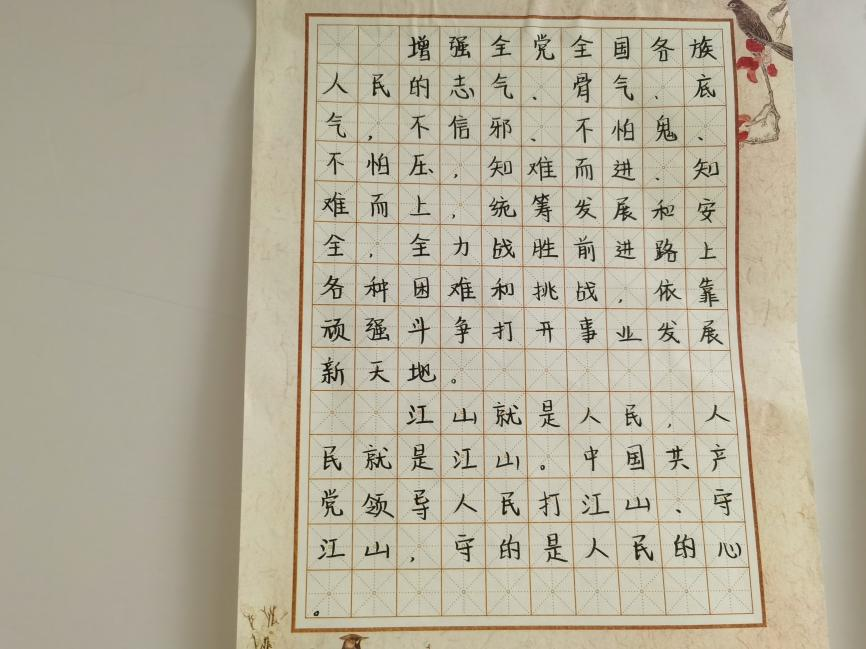 增强全党全国各族
人民的志气、骨气、底
气，不信邪、不怕鬼、
不怕压，知难而进、知
难而上，统筹发展和安
全，全力战胜前进路上
各种困难和挑战，依靠
顽强斗争打开事业发展
新天地。
江山就是人民，人
民就是江山。中国共产
党领导人民打江山、守
江山，守的是人民的心
。